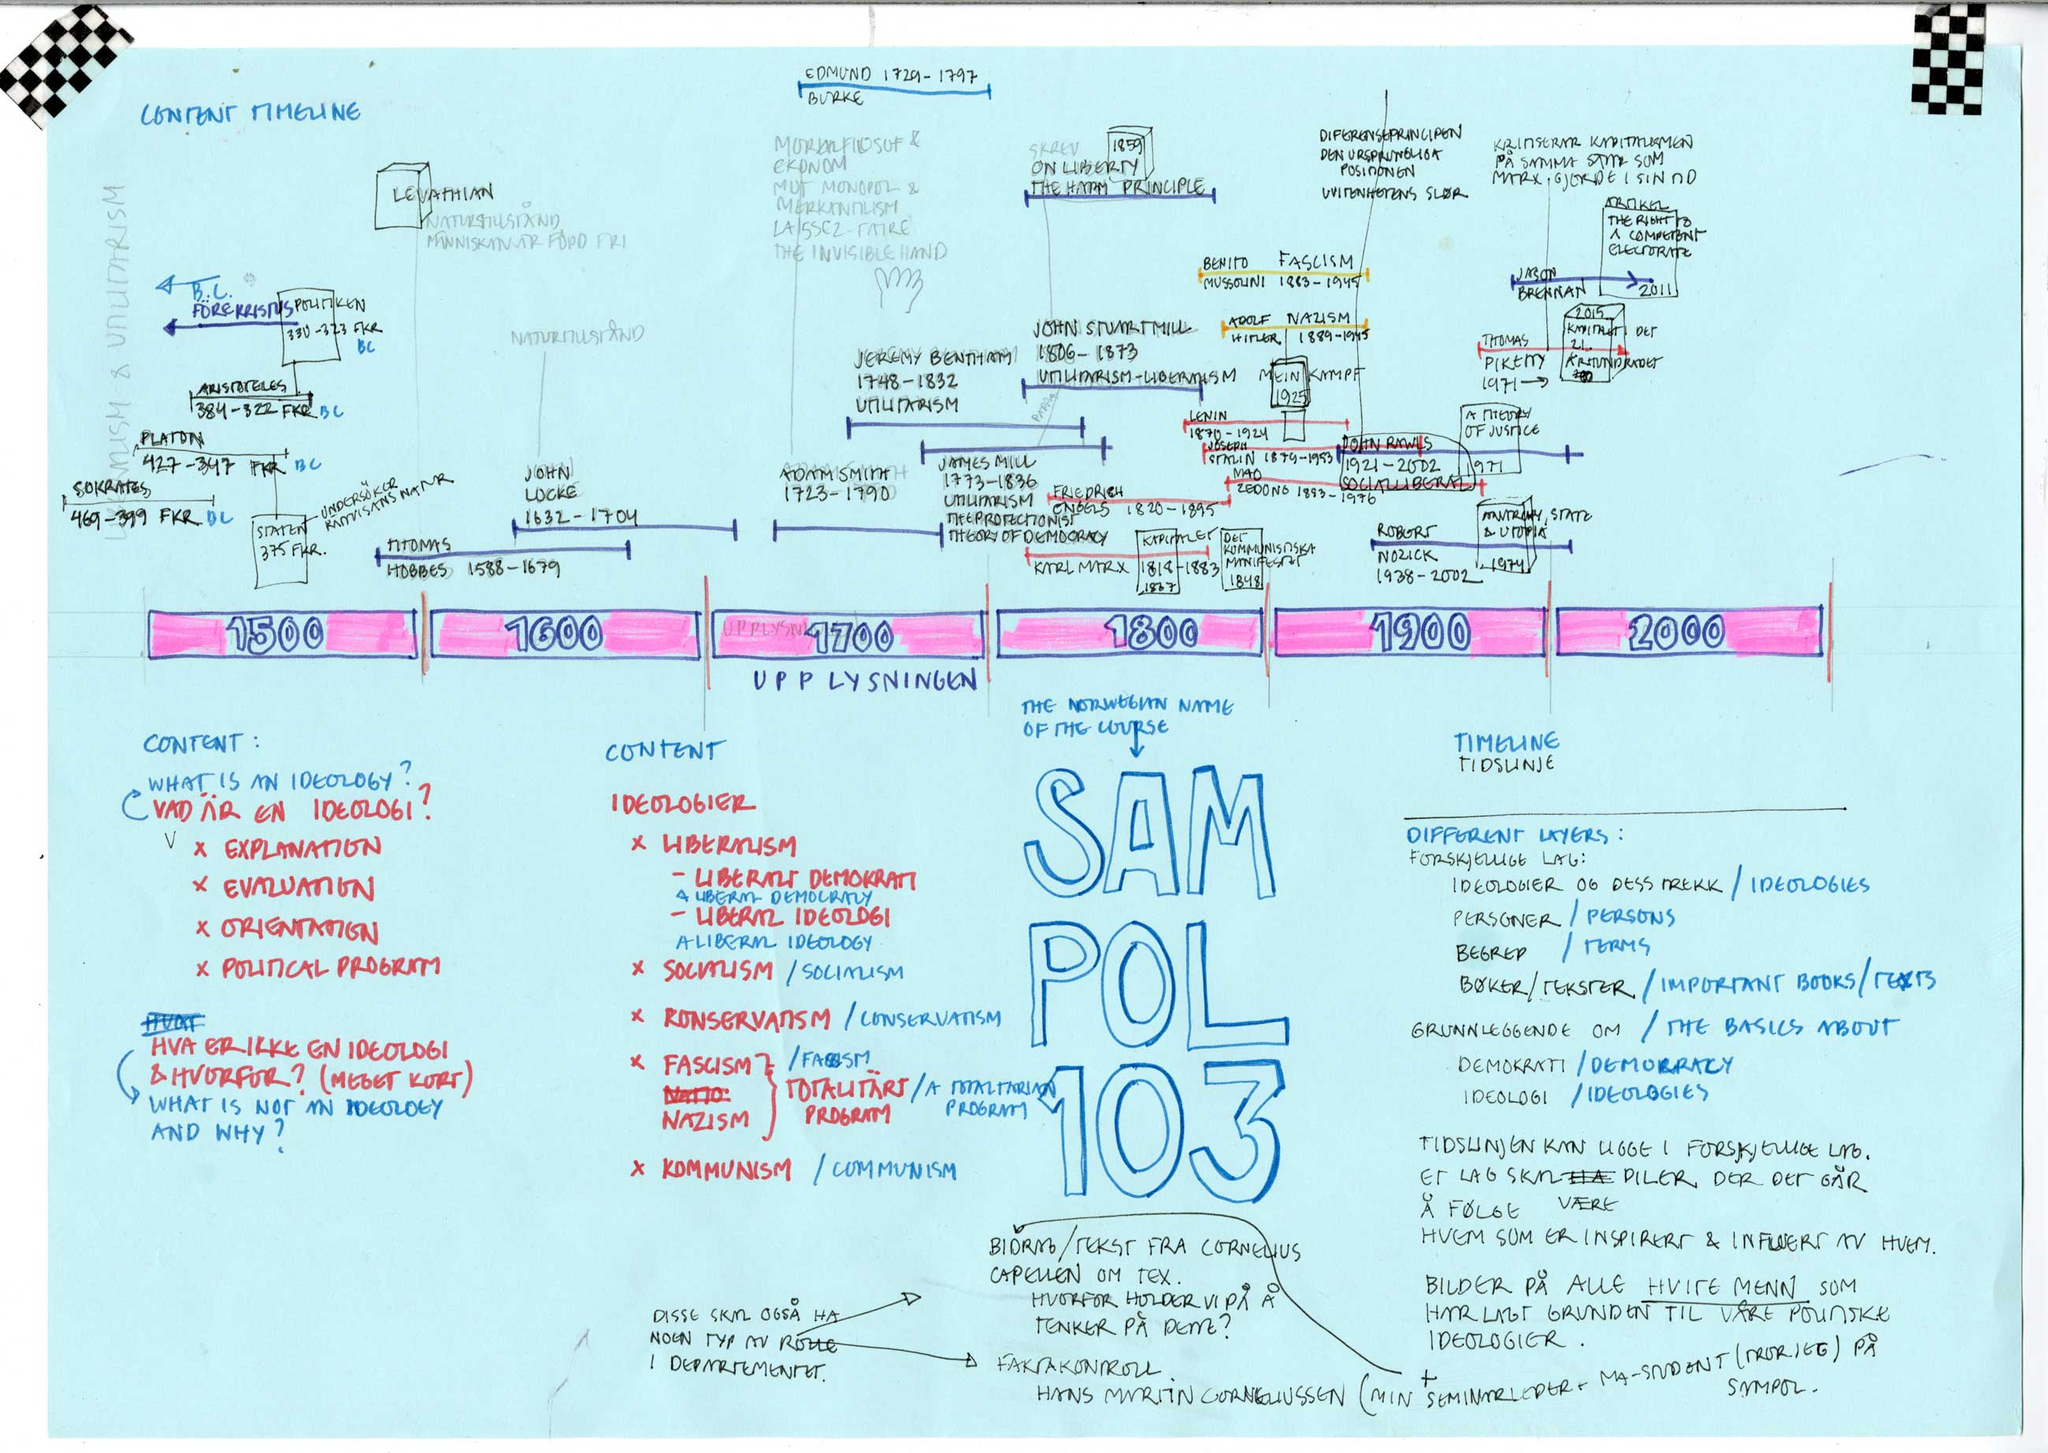 CONTENT TIMELINE
EDMUND 1729-1797
BURKE
LEVATHIAN
NATURTILSTÅND
MÄNNISKAN ÄR FÖDD FRI
MORALFILOSOF &
EKONOM
MOT MONOPOL &
MERKANTILISM
LAISSEZ-FAIRE
THE INVISIBLE HAND
SKREV
1859
ON LIBERTY
THE HARM PRINCIPLE
DIFERENSPRINCIPEN
DEN URSPRUNGLIGA
POSITIONEN
UVITENHETENS SLØR
KRITISERAR KAPITALISMEN
PÅ SAMMA SÄTT SOM
MARX GJORDE I SIN TID
ARTIKEL
THE RIGHT TO
A COMPETENT
ELECTORATE
2011
JASON
BRENNAN
& UTILITARISM
B.C.
FÖRE KRISTUS
POLITIKEN
330-323 FKR
BC
ARISTOTELES
384-322 FKR BC
PLATON
427-347 FKR BC
SOKRATES
469-399 FKR BC
STATEN
375 FKR.
UNDERSÖKER
RÄTTVISANS NATUR
NATURTILSTÅND
JOHN
LOCKE
1632-1704
THOMAS
HOBBES 1588-1679
ADAM SMITH
1723-1790
JEREMY BENTHAM
1748-1832
UTILITARISM
JOHN STUART MILL
1806-1873
UTILITARISM-LIBERALISM
PAPPA
JAMES MILL
1773-1836
UTILITARISM
THE PROTECTIONIST
THEORY OF DEMOCRACY
BENITO FASCISM
MUSSOLINI 1883-1945
ADOLF NAZISM
HITLER 1889-1945
MEIN KAMPF
1925
LENIN
1870-1924
JOSEPH
STALIN 1879-1953
MAO
ZEDONG 1893-1976
FRIEDRICH
ENGELS 1820-1895
KARL MARX 1818-1883
KAPITALET
1867
DET
KOMMUNISTISKA
MANIFESTET
1848
JOHN RAWLS
1921-2002
SOCIALLIBERAL
A THEORY
OF JUSTICE
1971
ROBERT
NOZICK
1938-2002
ANARCHY, STATE
& UTOPIA
1974
THOMAS
PIKETTY
1971
2015
KAPITALET I DET
21.
ÅRHUNDRADET
1500 1600 1700 1800 1900 2000
UPPLYSNINGEN
CONTENT:
WHAT IS AN IDEOLOGY?
VAD ÄR EN IDEOLOGI?
V
X EXPLANATION
X EVALUATION
X ORIENTATION
X POLITICAL PROGRAM
HVOR
HVA ER IKKE EN IDEOLOGI
& HVORFOR? (MEGET KORT)
WHAT IS NOT AN IDEOLOGY
AND WHY?
CONTENT
IDEOLOGIER
X LIBERALISM
- LIBERALT DEMOKRATI
A LIBERAL DEMOCRACY
- LIBERAL IDEOLOGI
A LIBERAL IDEOLOGY
X SOCIALISM / SOCIALISM
X KONSERVATISM / CONSERVATISM
X FASCISM / FACISM
NATIO:
NAZISM
TOTALITÄRT / A TOTALITARIAN
PROGRAM PROGRAM
X KOMMUNISM / COMMUNISM
THE NORWEGIAN NAME
OF THE COURSE
SAM
POL
103
BIDRAG/TEKST FRA CORNELIUS
CAPELLEN OM TEX.
HVORFOR HOLDER VI PÅ Å
TENKER PÅ DETTE?
DISSE SKAL OGSÅ HA
NOEN TYP AV ROLLE
I DEPARTEMENTET.
FAKTAKONTROLL
HANS MARTIN CORNELIUSSEN (MIN SEMINARLEDER + MA-STUDENT (TROR JEG) PÅ
SAMPOL.
TIMELINE
TIDSLINJE
DIFFERENT LAYERS:
FORSKJELLIGE LAG:
IDEOLOGIER OG DESS TREKK / IDEOLOGIES
PERSONER / PERSONS
BEGREP / TERMS
BØKER/TEKSTER / IMPORTANT BOOKS/TEXTS
GRUNNLEGGENDE OM / THE BASICS ABOUT
DEMOKRATI / DEMOCRACY
IDEOLOGI / IDEOLOGIES
TIDSLINJEN KAN LIGGE I FORSKJELLIGE LAG.
ET LAG SKAL HA PILER DER DET GÅR
Å FØLGE VÆRE
HVEM SOM ER INSPIRERT & INFLUERT AV HVEM.
BILDER PÅ ALLE HVITE MENN SOM
HAR LAGT GRUNDEN TIL VÅRE POLITISKE
IDEOLOGIER.